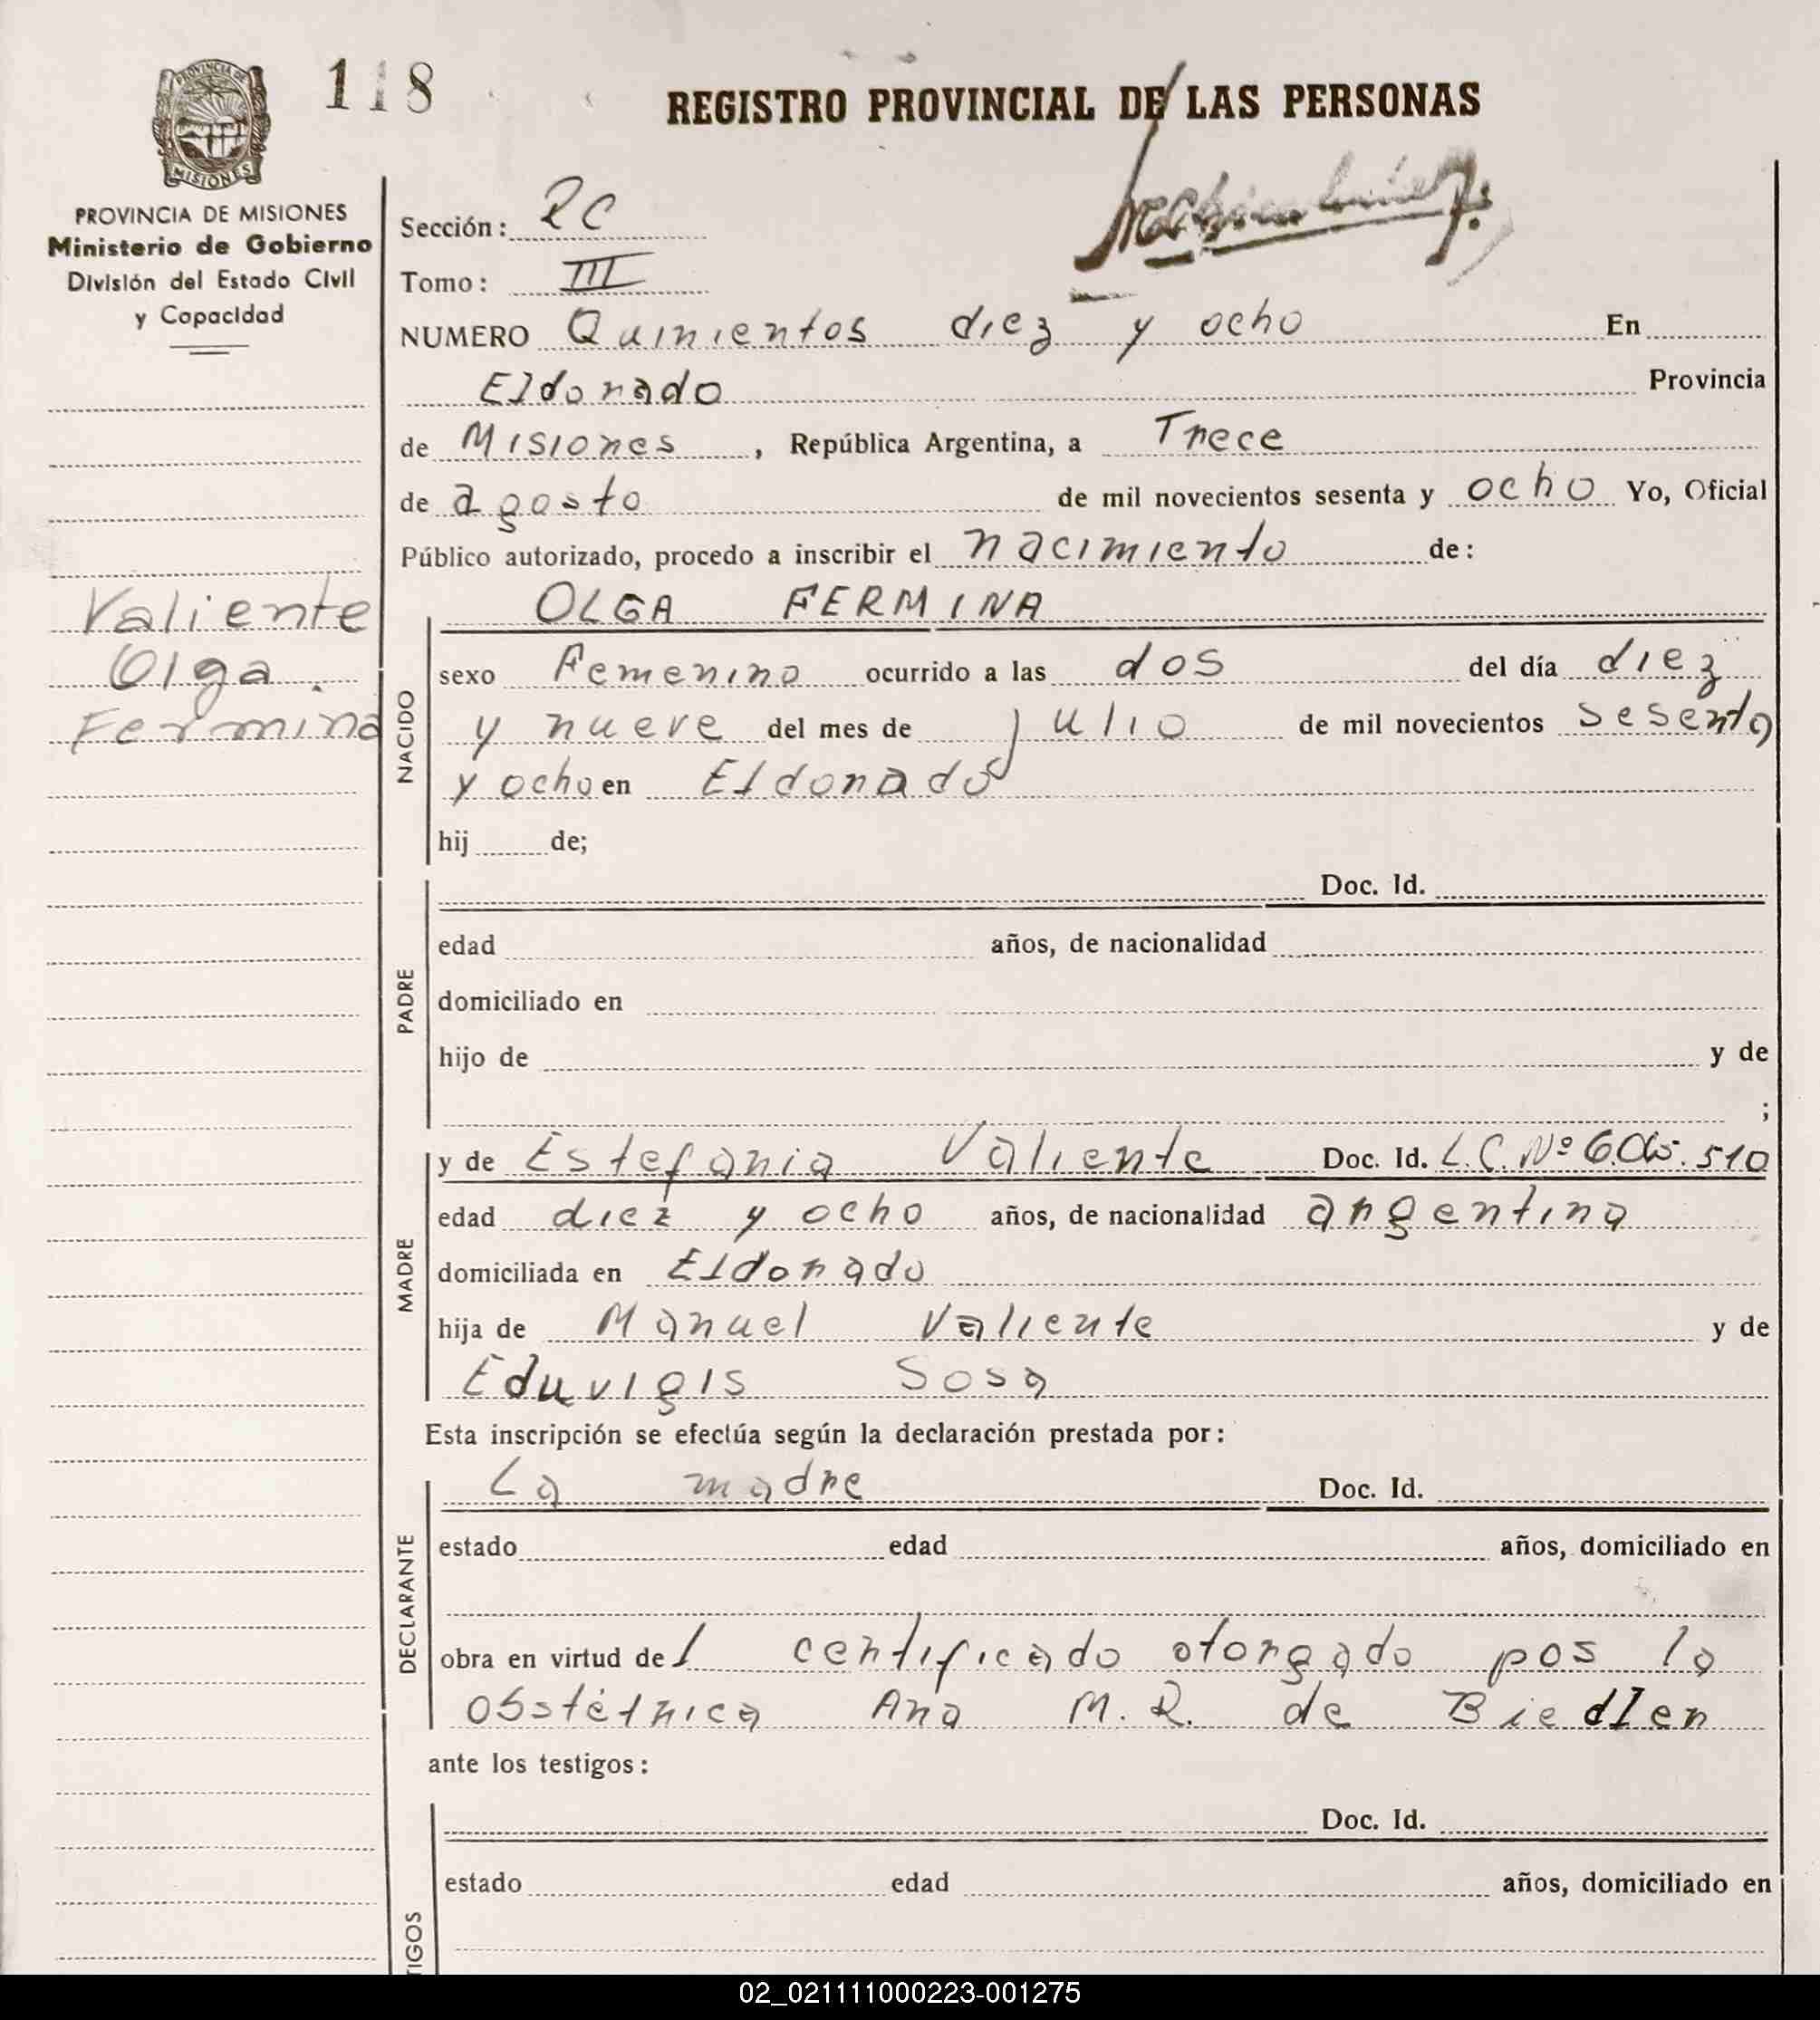 118
REGISTRO PROVINCIAL DE LAS PERSONAS
PROVINCIA DE MISIONES
MISIONES
PROVINCIA DE MISIONES
Ministerio de Gobierno
División del Estado Civil
y Capacidad
Sección: RC
Tomo: III
NUMERO Quinientos diez y ocho En
Eldorado Provincia
de Misiones, República Argentina, a Trece
de agosto de mil novecientos sesenta y ocho Yo, Oficial
Público autorizado, procedo a inscribir el nacimiento de:
Valiente
Olga
Fermina
NACIDO
OLGA FERMINA
sexo Femenino ocurrido a las dos del día diez
y nueve del mes de julio de mil novecientos sesenta
y ocho en Eldorado
hij de;
PADRE
Doc. Id.
edad años, de nacionalidad
domiciliado en
hijo de y de
;
MADRE
y de Estefania Valiente Doc. Id. L.C. Nº 510
edad diez y ocho años, de nacionalidad argentina
domiciliada en Eldorado
hija de Manuel Valiente y de
Eduvigis Sosa
Esta inscripción se efectúa según la declaración prestada por:
DECLARANTE
La madre Doc. Id.
estado edad años, domiciliado en
obra en virtud del certificado otorgado por la
Obstétrica Ana M. R. de Biedler
ante los testigos:
TIGOS
Doc. Id.
estado edad años, domiciliado en
02_021111000223-001275